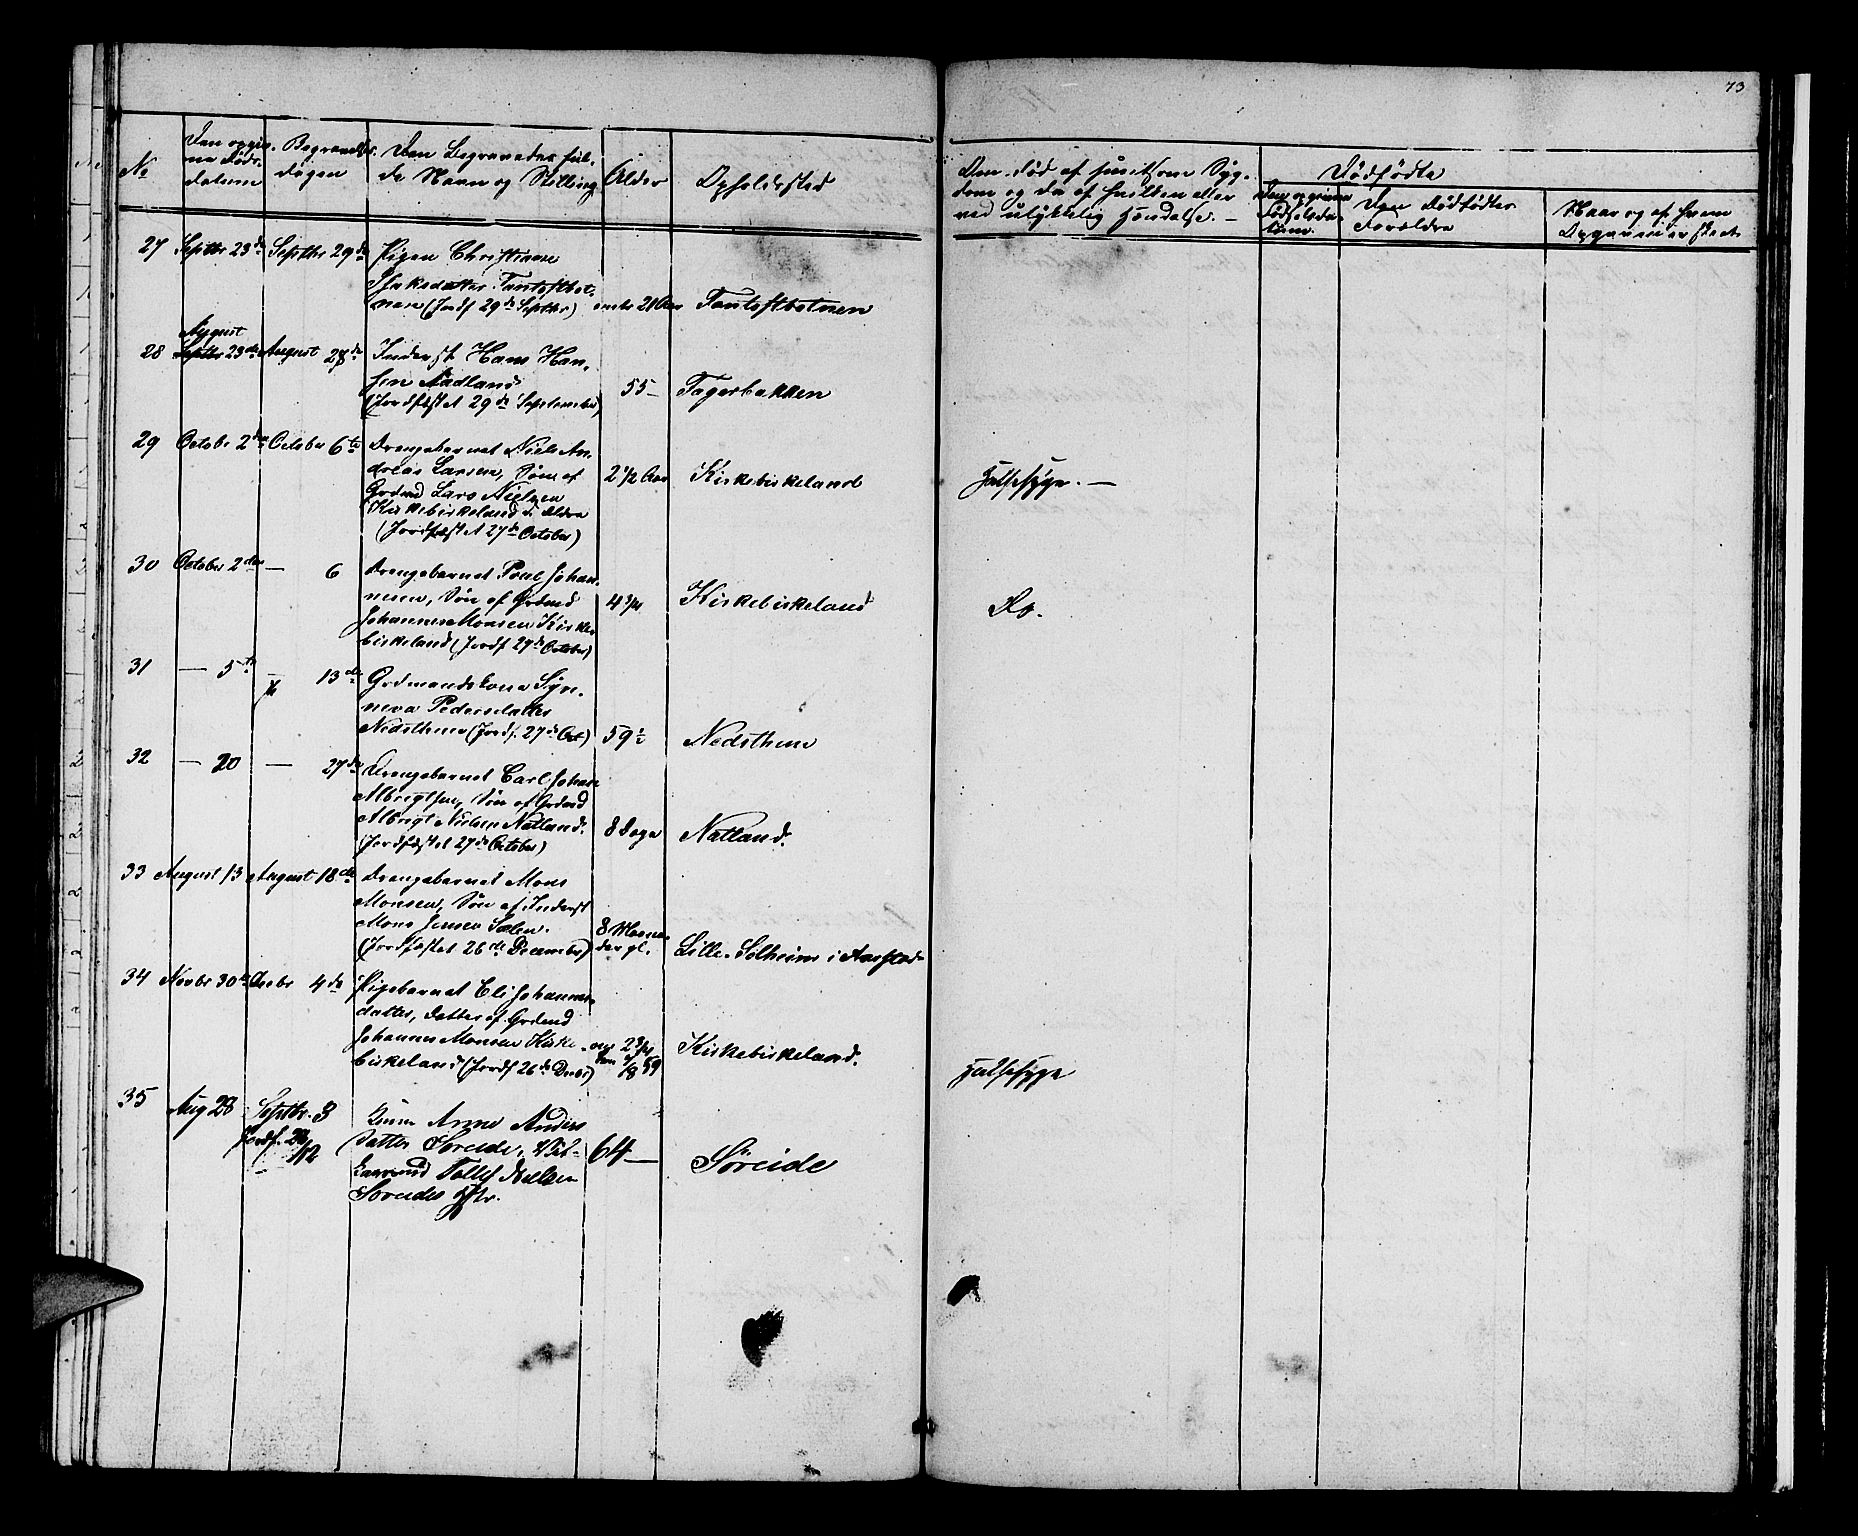 73
No
Den opgiv-
ne Døds-
datum
Begravelses-
dagen
Den Begravedes ful-
de Navn og Stilling
Alder
Opholdssted
Den død af smitsom Syg-
dom og da af hvilken eller
ved ulykkelig Hændelse. —
Dødfødte
Den opgivne
Fødselsda-
tum.
Den Dødfødtes
Forældre
Naar og af hvem
Opgaven er skeet
27 Septbr 23de Septbr 29de Pigen Christianne
Tantoftbot-
nen (Jordf 29de Septbr) 21 Aar Tantoftbotnen
August
28 Septbr 23de August 28de Inderst Hans Han-
sen Nadland
(Jordfæstet 29de September) 55 — Fagerbakken
29 Octobr 2den October 6te Drengebarnet Niels An-
dreas Larsen, Søn af
Grdmd Lars Nielsen
Kirkebirkeland d. ældre
(Jordfæstet 27de October) 2 1/2 Aar Kirkebirkeland Halssyge. —
30 October 2den — 6 Drengebarnet Poul Johan-
nesen, Søn af Grdmd
Johannes Monsen Kirke-
birkeland (Jordf 27de October) 4 3/4 Kirkebirkeland Do.
31 — 5te — 13de Grdmandskone Syn-
neva Pedersdatter
Nedsthuun (Jordf. 27de Oct) 59 1/2 Nedsthuun
32 — 20 — 27de Drengebarnet Carl Johan
Albrigtsen, Søn af Grdmd
Albrigt Nielsen Natland.
(Jordfæstet 27de October) 8 Dage Natland.
33 August 13 August 18de Drengebarnet Mons
Monsen, Søn af Inderst
Mons Jensen Sælen.
(Jordfæstet 26de December) 8 Maane-
der gl. Lille-Solheim i Aarstad
34 Novbr 30te Decbr 4de Pigebarnet Eli Johannes-
datter, Datter af Grdmd
Johannes Monsen Kirke-
birkeland (Jordf 26de Decbr) 2 3/4 Kirkebirkeland. Halssyge
35 Aug 28 Septbr. 3
Jordf. 26/12
Anne Anders
datter Søreide,
Tollef Nielsen
Søreides Hstr. 64 — Søreide